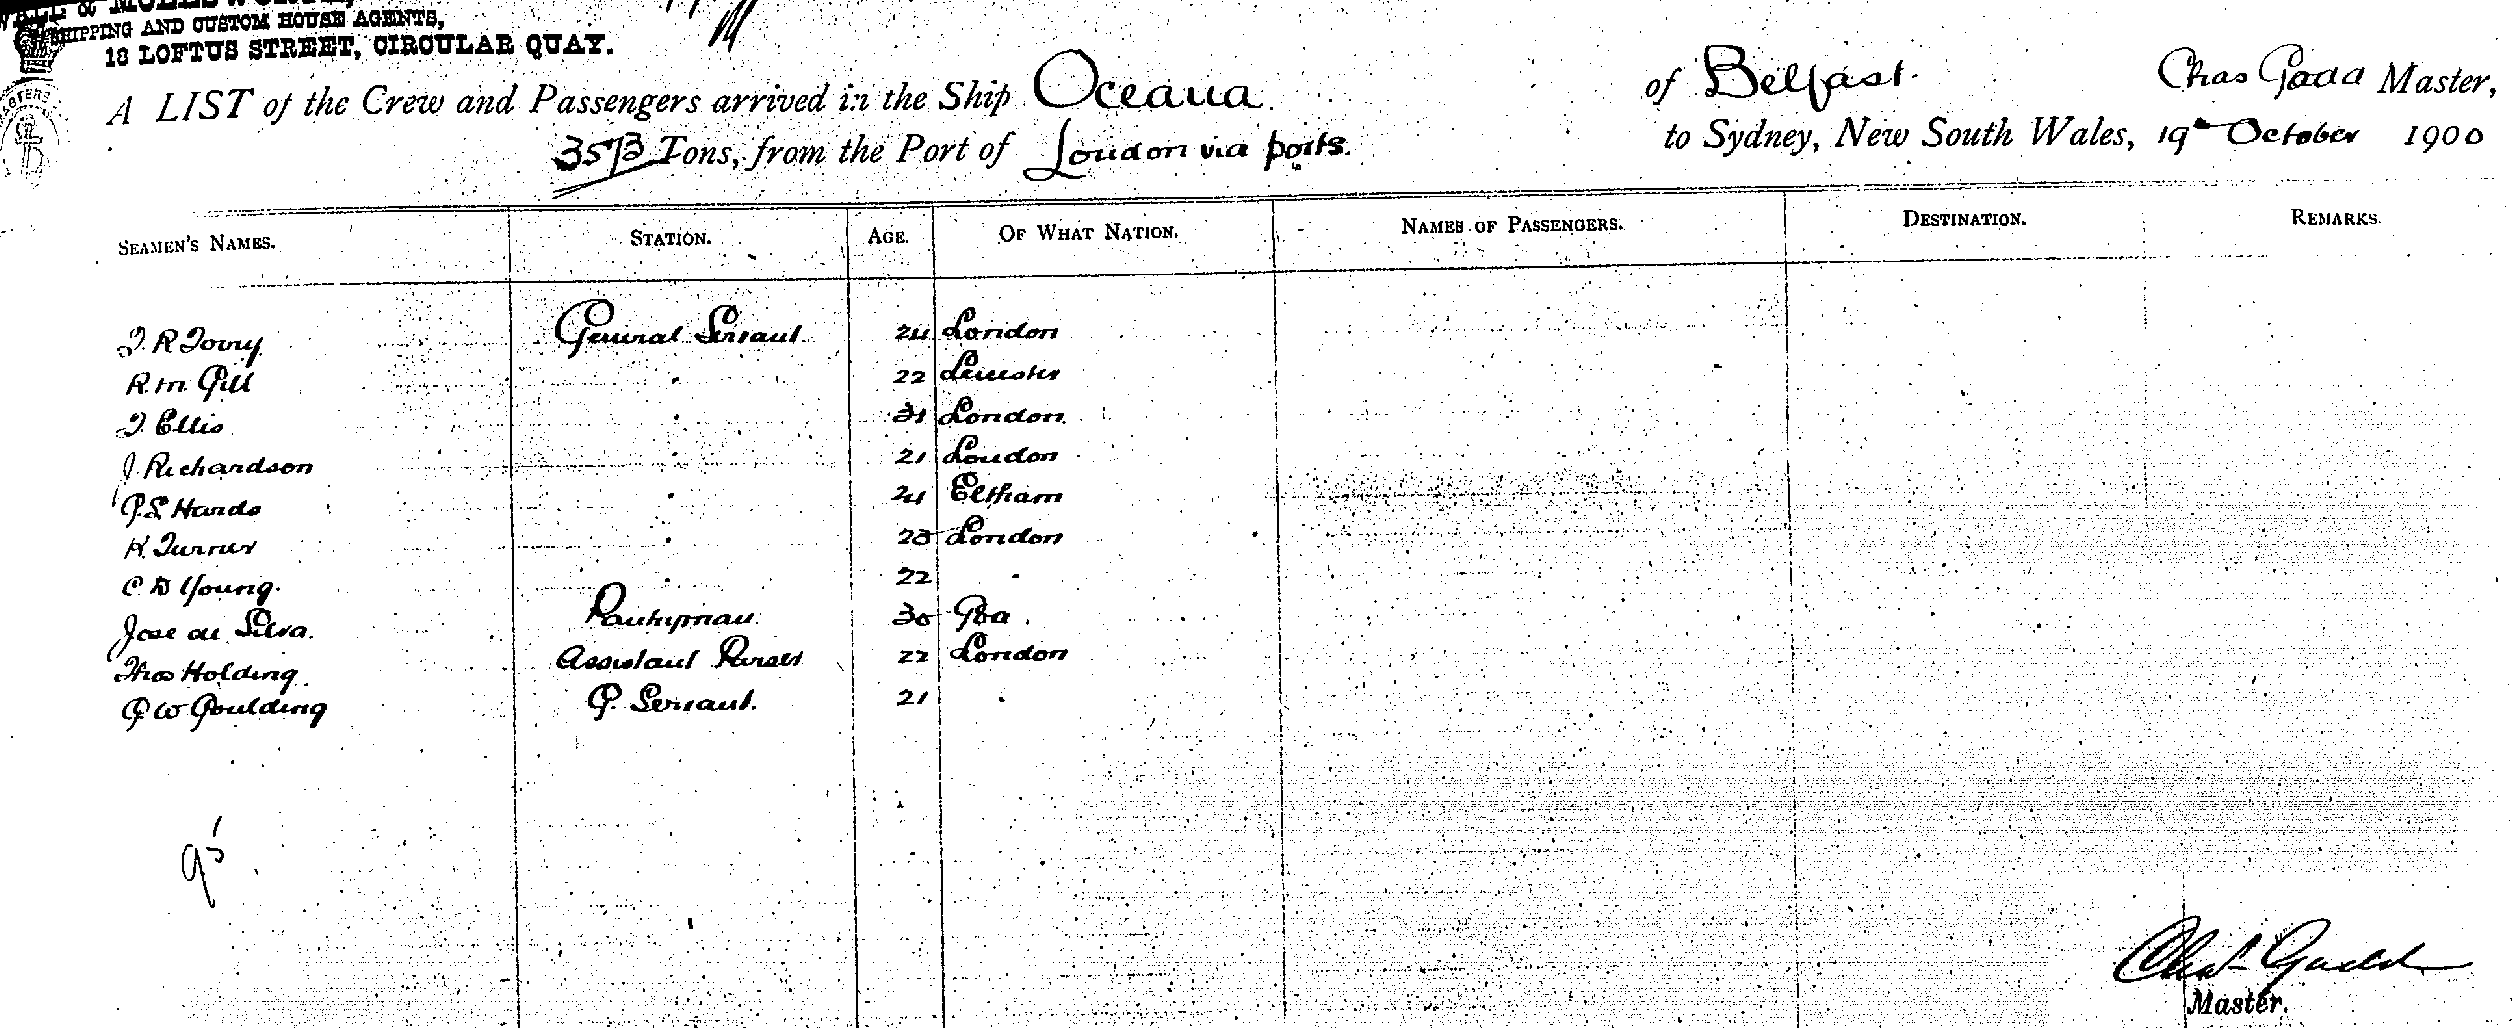 SHIPPING AND CUSTOM HOUSE AGENTS,
18 LOFTUS STREET, CIRCULAR QUAY.
A LIST of the Crew and Passengers arrived in the Ship Oceana of Belfast. Chas Gadd Master,
3573 Tons, from the Port of London via ports. to Sydney, New South Wales, 19th October 1900
SEAMEN'S NAMES. STATION. AGE. OF WHAT NATION. NAMES OF PASSENGERS. DESTINATION. REMARKS.
General Servant 24 London
R. M. Gill " 22 Leicester
J. Ellis " 31 London
J. Richardson " 21 London
Hards " 24 Eltham
H. Turner " London
C D Young " 22 "
Jose de Silva Pantryman 30 Goa
Thos Holding Assistant Purser 22 London
G W Goulding G. Servant. 21 "
95
Chas Gadd
Master.